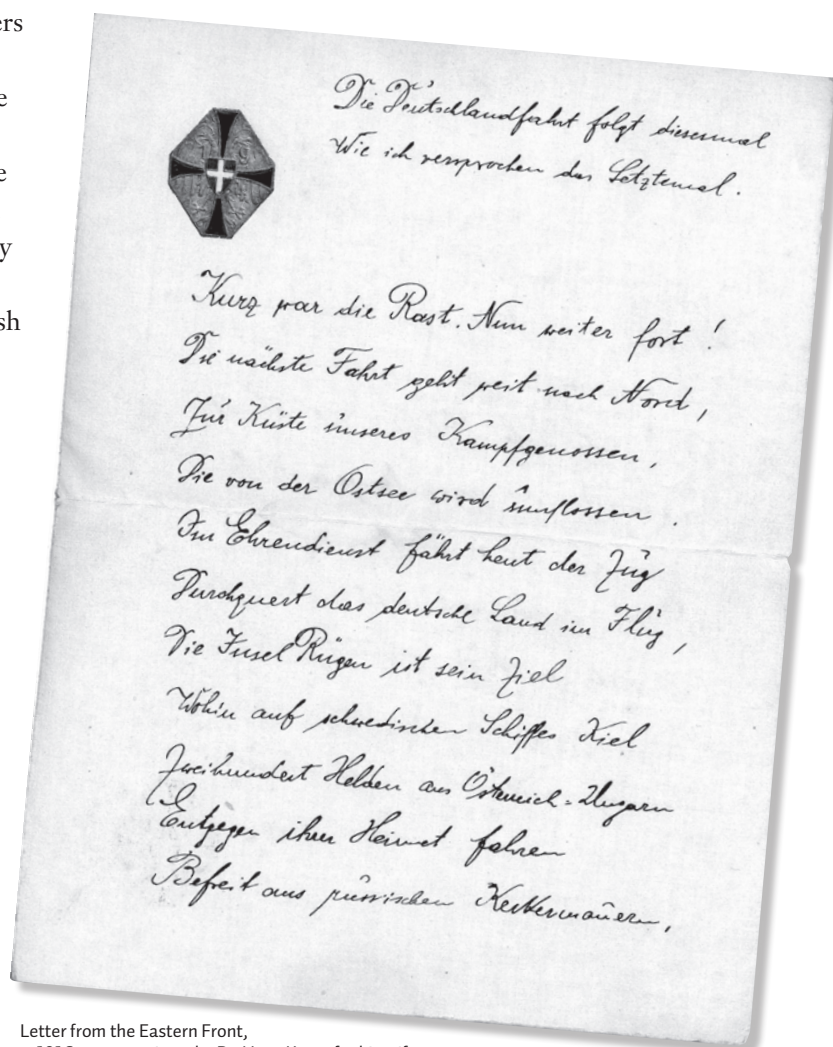 ers
e
e
y
sh
Die Deutschlandfahrt folgt diesesmal
Wie ich versprochen das Letztemal.
Kurz war die Rast. Nun weiter fort!
Die nächste Fahrt geht weit nach Nord,
Zur Küste unseres Kampfgenossen,
Die von der Ostsee wird umflossen.
Im Ehrendienst fährt heut der Zug
Durchquert das deutsche Land im Flug,
Die Insel Rügen ist sein Ziel
Wohin auf schwedischen Schiffes Kiel
Zweihundert Helden aus Österreich-Ungarn
Entgegen ihrer Heimat fahren
Befreit aus russischen Kerkermauern,
Letter from the Eastern Front,